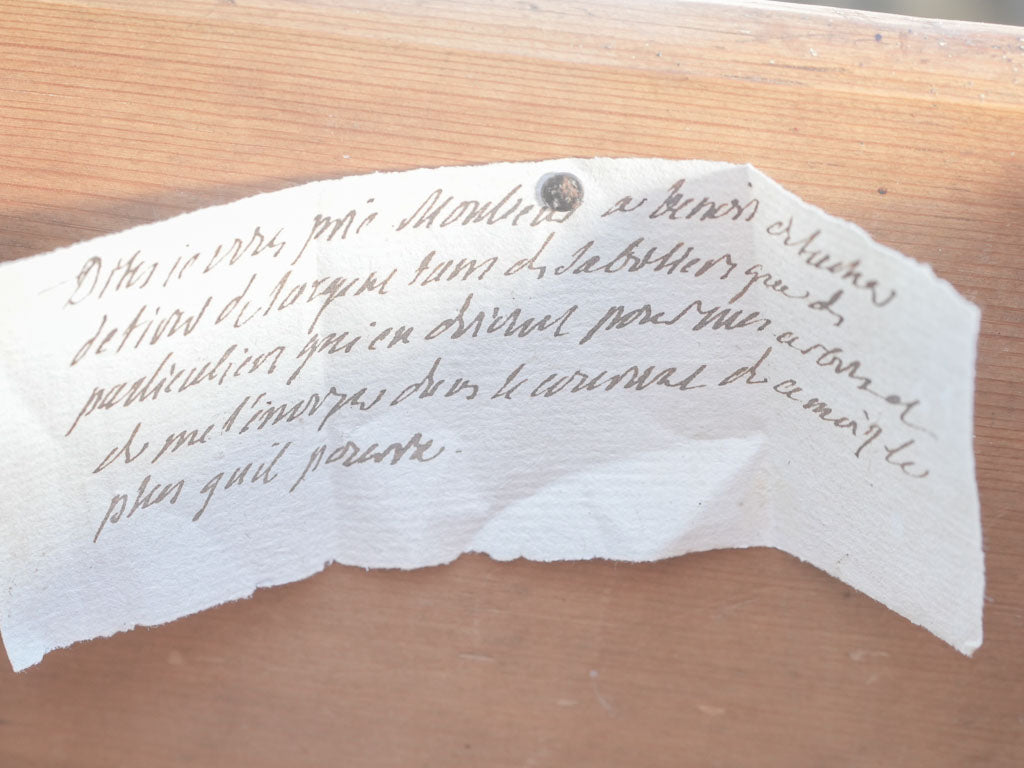 Dites je vous prie Monsieur a benoit de tacher
de tirer de largent tant des sabotiers que des
particuliers qui en doivent pour mes arbres et
de me lenvoyer dans le courant de ce mois le
plus quil pourra.